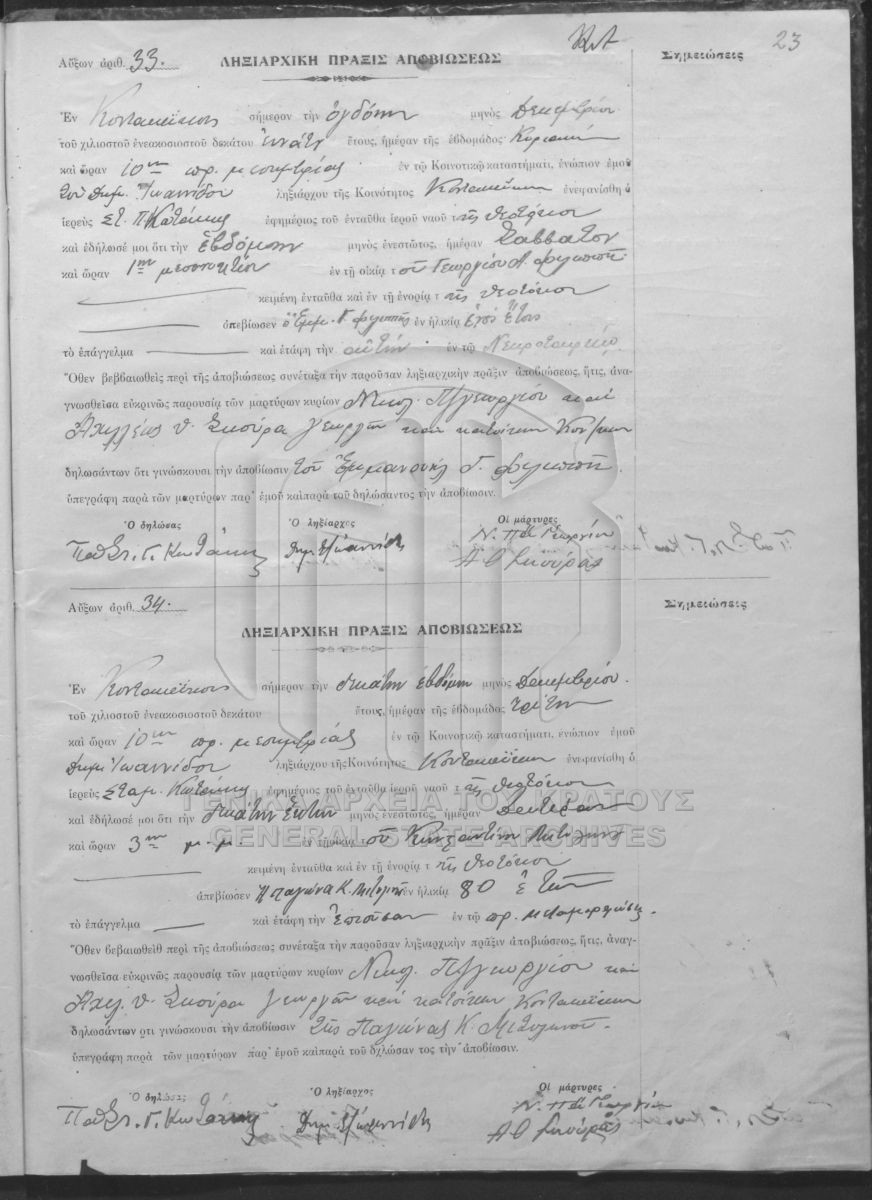 23
Αὔξων ἀριθ. 33.
ΛΗΞΙΑΡΧΙΚΗ ΠΡΑΞΙΣ ΑΠΟΒΙΩΣΕΩΣ
Σημειώσεις
Ἐν Κοντακέϊκοις σήμερον τὴν ὀγδόην μηνὸς Δεκεμβρίου
τοῦ χιλιοστοῦ ἐνεακοσιοστοῦ δεκάτου ἐννάτου ἔτους, ἡμέραν τῆς ἑβδομάδος Κυριακὴν
καὶ ὥραν 10ην πρ. μεσημβρίας ἐν τῷ Κοινοτικῷ καταστήματι, ἐνώπιον ἐμοῦ
τοῦ Δημ. Ἰωαννίδου ληξιάρχου τῆς Κοινότητος Κοντακέϊκων ἐνεφανίσθη ὁ
ἱερεὺς Στ. Κωτάκης ἐφημέριος τοῦ ἐνταῦθα ἱεροῦ ναοῦ τῆς Θεοτόκου
καὶ ἐδήλωσέ μοι ὅτι τὴν ἑβδόμην μηνὸς ἐνεστῶτος, ἡμέραν Σάββατον
καὶ ὥραν 1ην μεσονυκτίου ἐν τῇ οἰκίᾳ τοῦ Γεωργίου
κειμένῃ ἐνταῦθα καὶ ἐν τῇ ἐνορίᾳ τῆς Θεοτόκου
ἀπεβίωσεν ὁ Ἐμμ. Γ. ἐν ἡλικίᾳ ἑνὸς ἔτους
τὸ ἐπάγγελμα καὶ ἐτάφη τὴν αὐτὴν ἐν τῷ Νεκροταφείῳ
Ὅθεν βεβαιωθεὶς περὶ τῆς ἀποβιώσεως συνέταξα τὴν παροῦσαν ληξιαρχικὴν πρᾶξιν ἀποβιώσεως, ἥτις, ἀνα-
γνωσθεῖσα εὐκρινῶς παρουσίᾳ τῶν μαρτύρων κυρίων Νικολ. Π]γεωργίου καὶ
Ἀχιλλέως Θ. Σκούρα γεωργῶν καὶ κατοίκων Κον/κων
δηλωσάντων ὅτι γινώσκουσι τὴν ἀποβίωσιν τοῦ Ἐμμανουὴλ Γ.
ὑπεγράφη παρὰ τῶν μαρτύρων παρ' ἐμοῦ καὶπαρὰ τοῦ δηλώσαντος τὴν ἀποβίωσιν.
Ὁ δηλώσας Ὁ ληξίαρχος Οἱ μάρτυρες
Ν. Παπαγεωργίου
Παπᾶ Στ. Γ. Κωτάκης Δημ. Ἰωαννίδης
Α Θ Σκούρας
Αὔξων ἀριθ. 34.
Σημειώσεις
ΛΗΞΙΑΡΧΙΚΗ ΠΡΑΞΙΣ ΑΠΟΒΙΩΣΕΩΣ
Ἐν Κοντακέϊκοις σήμερον τὴν δεκάτην ἑβδόμην μηνὸς Δεκεμβρίου
τοῦ χιλιοστοῦ ἐνεακοσιοστοῦ δεκάτου ἔτους, ἡμέραν τῆς ἑβδομάδος τρίτην
καὶ ὥραν 10ην πρ. μεσημβρίας ἐν τῷ Κοινοτικῷ καταστήματι, ἐνώπιον ἐμοῦ
Δημ. Ἰωαννίδου ληξιάρχου τῆς Κοινότητος Κοντακέϊκων ἐνεφανίσθη ὁ
ἱερεὺς Σταμ. Κωτάκης ἐφημέριος τοῦ ἐνταῦθα ἱεροῦ ναοῦ τῆς Θεοτόκου
ΓΕΝΙΚΑ ΑΡΧΕΙΑ ΤΟΥ ΚΡΑΤΟΥΣ
καὶ ἐδήλωσέ μοι ὅτι τὴν δεκάτην ἕκτην μηνὸς ἐνεστῶτος, ἡμέραν Δευτέραν
GENERAL STATE ARCHIVES
καὶ ὥραν 3ην μ.μ. ἐν τῇ οἰκίᾳ τοῦ Κωνσταντίνου
κειμένῃ ἐνταῦθα καὶ ἐν τῇ ἐνορίᾳ τῆς Θεοτόκου
ἀπεβίωσεν Ἡ Παγώνα Κ. ἐν ἡλικίᾳ 80 ἐτῶν
τὸ ἐπάγγελμα καὶ ἐτάφη τὴν ἐπιοῦσαν ἐν τῷ
Ὅθεν βεβαιωθεὶθ περὶ τῆς ἀποβιώσεως συνέταξα τὴν παροῦσαν ληξιαρχικὴν πρᾶξιν ἀποβιώσεως, ἥτις, ἀναγ-
νωσθεῖσα εὐκρινῶς παρουσίᾳ τῶν μαρτύρων κυρίων Νικολ. Π]γεωργίου καὶ
Ἀχιλ. Θ. Σκούρα γεωργῶν καὶ κατοίκων Κοντακέϊκων
δηλωσάντων οτι γινώσκουσι τὴν ἀποβίωσιν τῆς Παγώνας Κ.
ὑπεγράφη παρὰ τῶν μαρτύρων παρ' ἐμοῦ καὶπαρὰ τοῦ δχλώσαν τος τὴν ἀποβίωσιν.
Ὁ δηλώσας Ὁ ληξίαρχος Οἱ μάρτυρες
Ν. Παπαγεωργίου
Παπᾶ Στ. Γ. Κωτάκης Δημ. Ἰωαννίδης
Α Θ Σκούρας